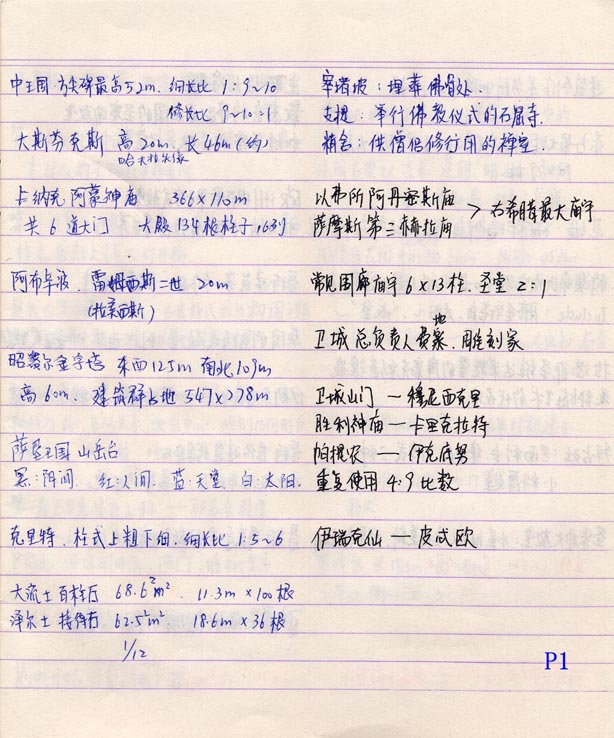 中王国·方尖碑最高52m. 细长比 1:9~10
修长比 9~10:1
大斯芬克斯 高20m. 长46m (约)
哈夫拉头像
卡纳克 阿蒙神庙 366×110m
共6道大门 大殿134根柱子, 16列
阿布辛波. 雷姆西斯二世 20m
(拉美西斯)
昭赛尔金字塔 东西125m 南北109m
高60m. 建筑群占地 547×278m
萨尔王国 山岳台
黑:阴间. 红:人间. 蓝:天堂. 白:太阳.
克里特. 柱式上粗下细. 细长比 1:5~6
大流士百柱厅 68.6²m². 11.3m×100根
泽尔士 接待厅 62.5²m². 18.6m×36根
1/12
窣堵坡:埋葬佛骨处.
支提:举行佛教仪式的石窟寺.
精舍:供僧侣修行用的禅室.
以弗所阿丹密斯庙
萨摩斯第二赫拉庙 > 古希腊最大庙宇
常见围廊庙宇 6×13柱. 圣堂 2:1
卫城总负责人费地. 雕刻家
卫城山门 — 穆尼西克里
胜利神庙 — 卡里克拉特
帕提农 — 伊克底努
重复使用 4:9 比数
伊瑞克仙 — 皮忒欧
P1